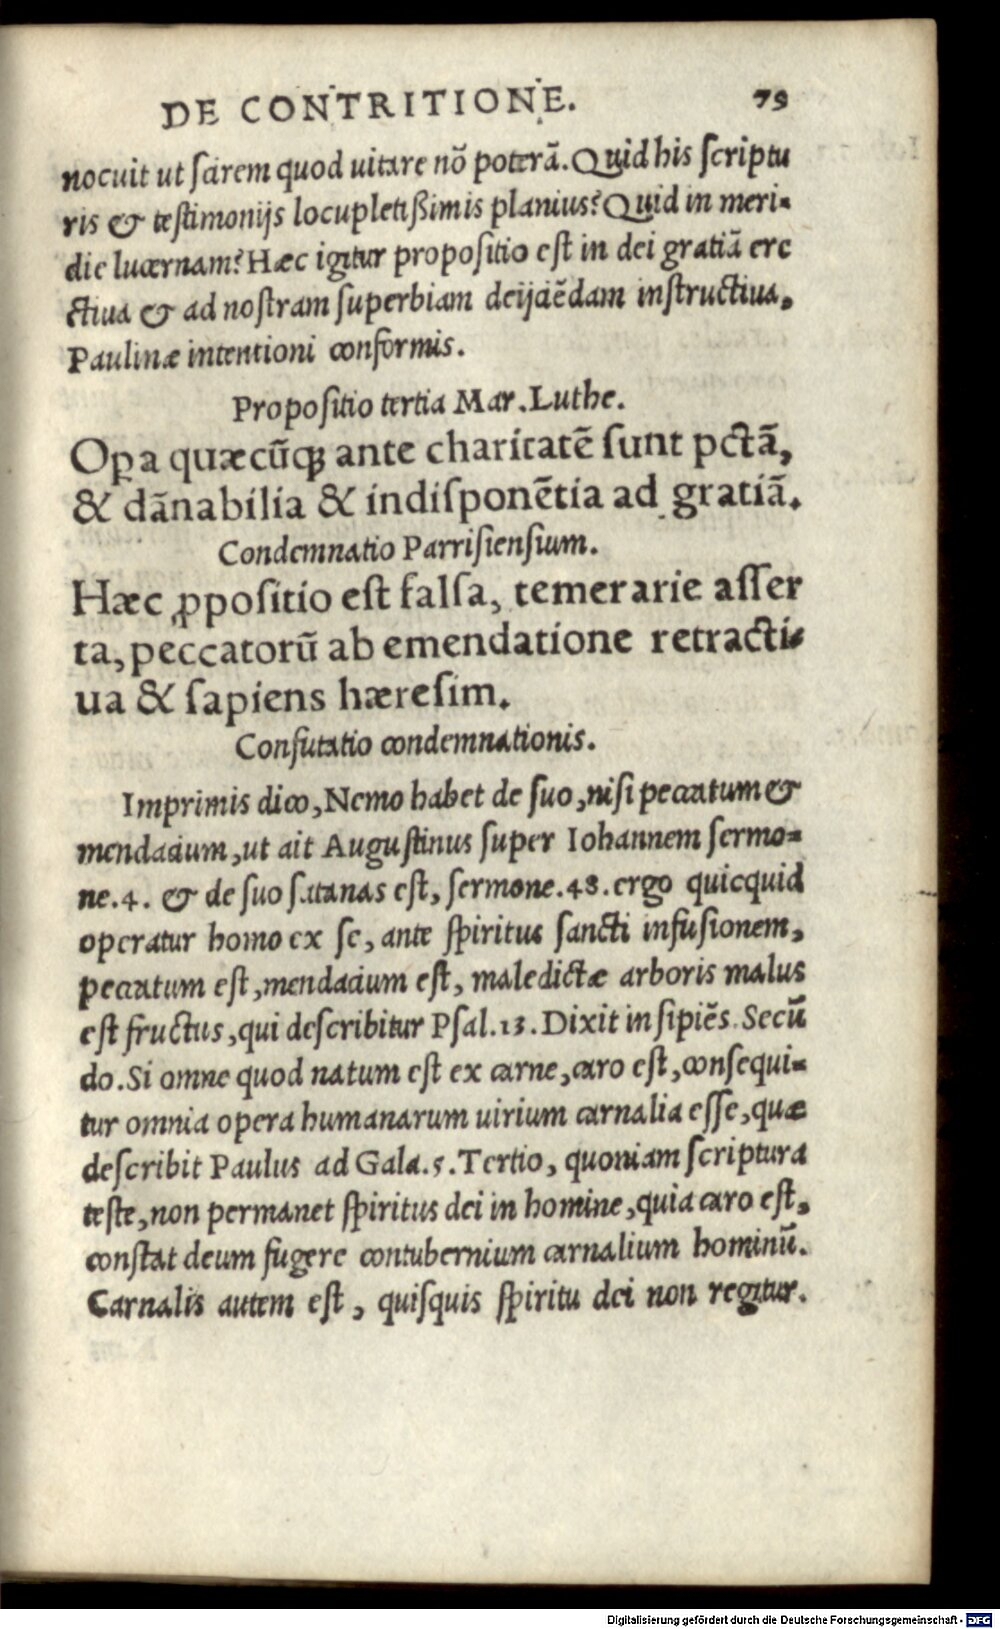 DE CONTRITIONE. 79
nocuit ut scirem quod uitare nō poterā. Quid his scriptu
ris & testimonijs locupletißimis planius? Quid in meri-
die lucernam? Hæc igitur propositio est in dei gratiā ere
ctiua & ad nostram superbiam deijciēdam instructiua,
Paulinæ intentioni conformis.
Propositio tertia Mar. Luthe.
Oꝑa quæcūꝗ ante charitatē sunt pctā,
& dānabilia & indisponētia ad gratiā.
Condemnatio Parrisiensium.
Hæc ꝓpositio est falsa, temerarie asser
ta, peccatorū ab emendatione retracti-
ua & sapiens hæresim.
Confutatio condemnationis.
Imprimis dico, Nemo habet de suo, nisi peccatum &
mendacium, ut ait Augustinus super Iohannem sermo-
ne.4. & de suo satanas est, sermone.48. ergo quicquid
operatur homo ex se, ante spiritus sancti infusionem,
peccatum est, mendacium est, maledictæ arboris malus
est fructus, qui describitur Psal.13. Dixit insipiēs. Secū
do. Si omne quod natum est ex carne, caro est, consequi-
tur omnia opera humanarum uirium carnalia esse, quæ
describit Paulus ad Gala.5. Tertio, quoniam scriptura
teste, non permanet spiritus dei in homine, quia caro est,
constat deum fugere contubernium carnalium hominū.
Carnalis autem est, quisquis spiritu dei non regitur.
Digitalisierung gefördert durch die Deutsche Forschungsgemeinschaft - DFG